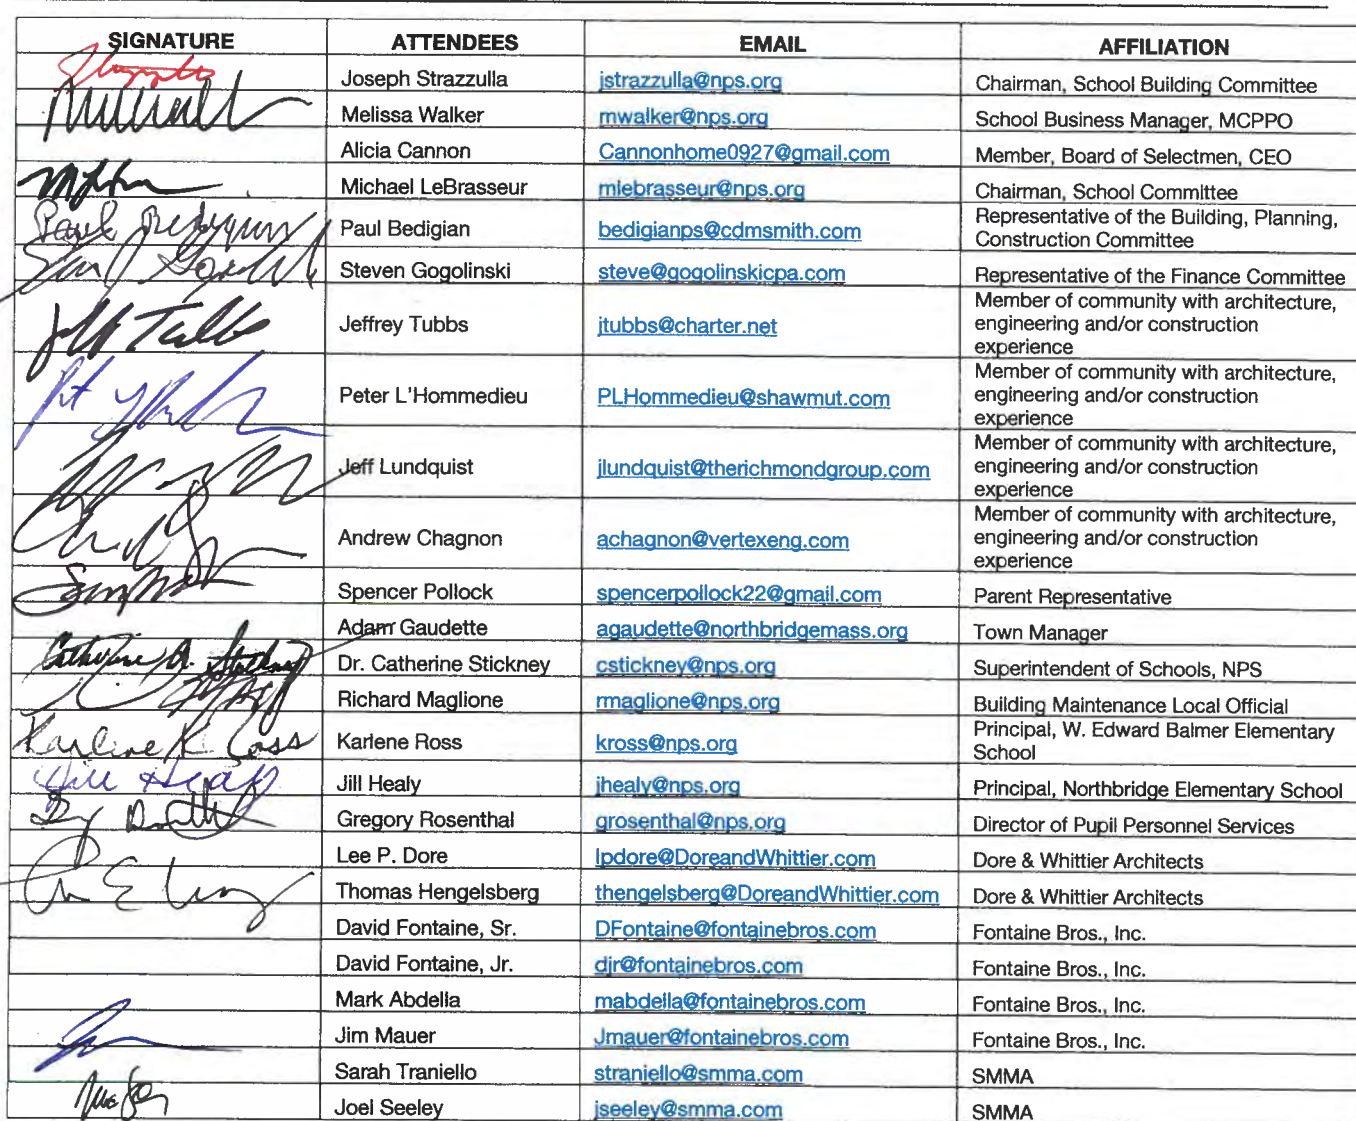 SIGNATURE ATTENDEES EMAIL AFFILIATION
Joseph Strazzulla jstrazzulla@nps.org Chairman, School Building Committee
Melissa Walker mwalker@nps.org School Business Manager, MCPPO
Alicia Cannon Cannonhome0927@gmail.com Member, Board of Selectmen, CEO
Michael LeBrasseur mlebrasseur@nps.org Chairman, School Committee
Paul Bedigian Paul Bedigian bedigianps@cdmsmith.com Representative of the Building, Planning,
Construction Committee
Steven Gogolinski steve@gogolinskicpa.com Representative of the Finance Committee
Jeff Tubbs Jeffrey Tubbs jtubbs@charter.net Member of community with architecture,
engineering and/or construction
experience
Peter L'Hommedieu PLHommedieu@shawmut.com Member of community with architecture,
engineering and/or construction
experience
Jeff Lundquist jlundquist@therichmondgroup.com Member of community with architecture,
engineering and/or construction
experience
Andrew Chagnon achagnon@vertexeng.com Member of community with architecture,
engineering and/or construction
experience
Spencer Pollock spencerpollock22@gmail.com Parent Representative
Adam Gaudette agaudette@northbridgemass.org Town Manager
Catherine A. Stickney Dr. Catherine Stickney cstickney@nps.org Superintendent of Schools, NPS
Richard Maglione rmaglione@nps.org Building Maintenance Local Official
Karlene K Ross Karlene Ross kross@nps.org Principal, W. Edward Balmer Elementary
School
Jill Healy Jill Healy jhealy@nps.org Principal, Northbridge Elementary School
Gregory Rosenthal grosenthal@nps.org Director of Pupil Personnel Services
Lee P. Dore lpdore@DoreandWhittier.com Dore & Whittier Architects
Thomas Hengelsberg thengelsberg@DoreandWhittier.com Dore & Whittier Architects
David Fontaine, Sr. DFontaine@fontainebros.com Fontaine Bros., Inc.
David Fontaine, Jr. djr@fontainebros.com Fontaine Bros., Inc.
Mark Abdella mabdella@fontainebros.com Fontaine Bros., Inc.
Jim Mauer Jmauer@fontainebros.com Fontaine Bros., Inc.
Sarah Traniello straniello@smma.com SMMA
Joel Seeley jseeley@smma.com SMMA